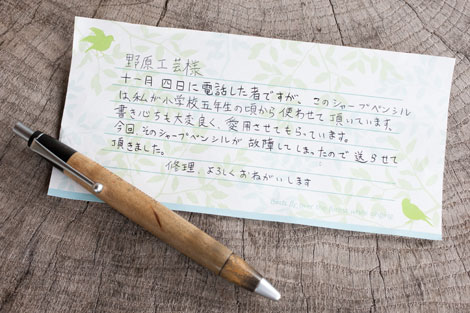 野原工芸様
十一月四日に電話した者ですが、このシャープペンシル
は、私が小学校五年生の頃から使わせて頂いています。
書き心ちも大変良く、愛用させてもらっています。
今回、そのシャープペンシルが故障してしまったので送らせて
頂きました。
修理、よろしくおねがいします